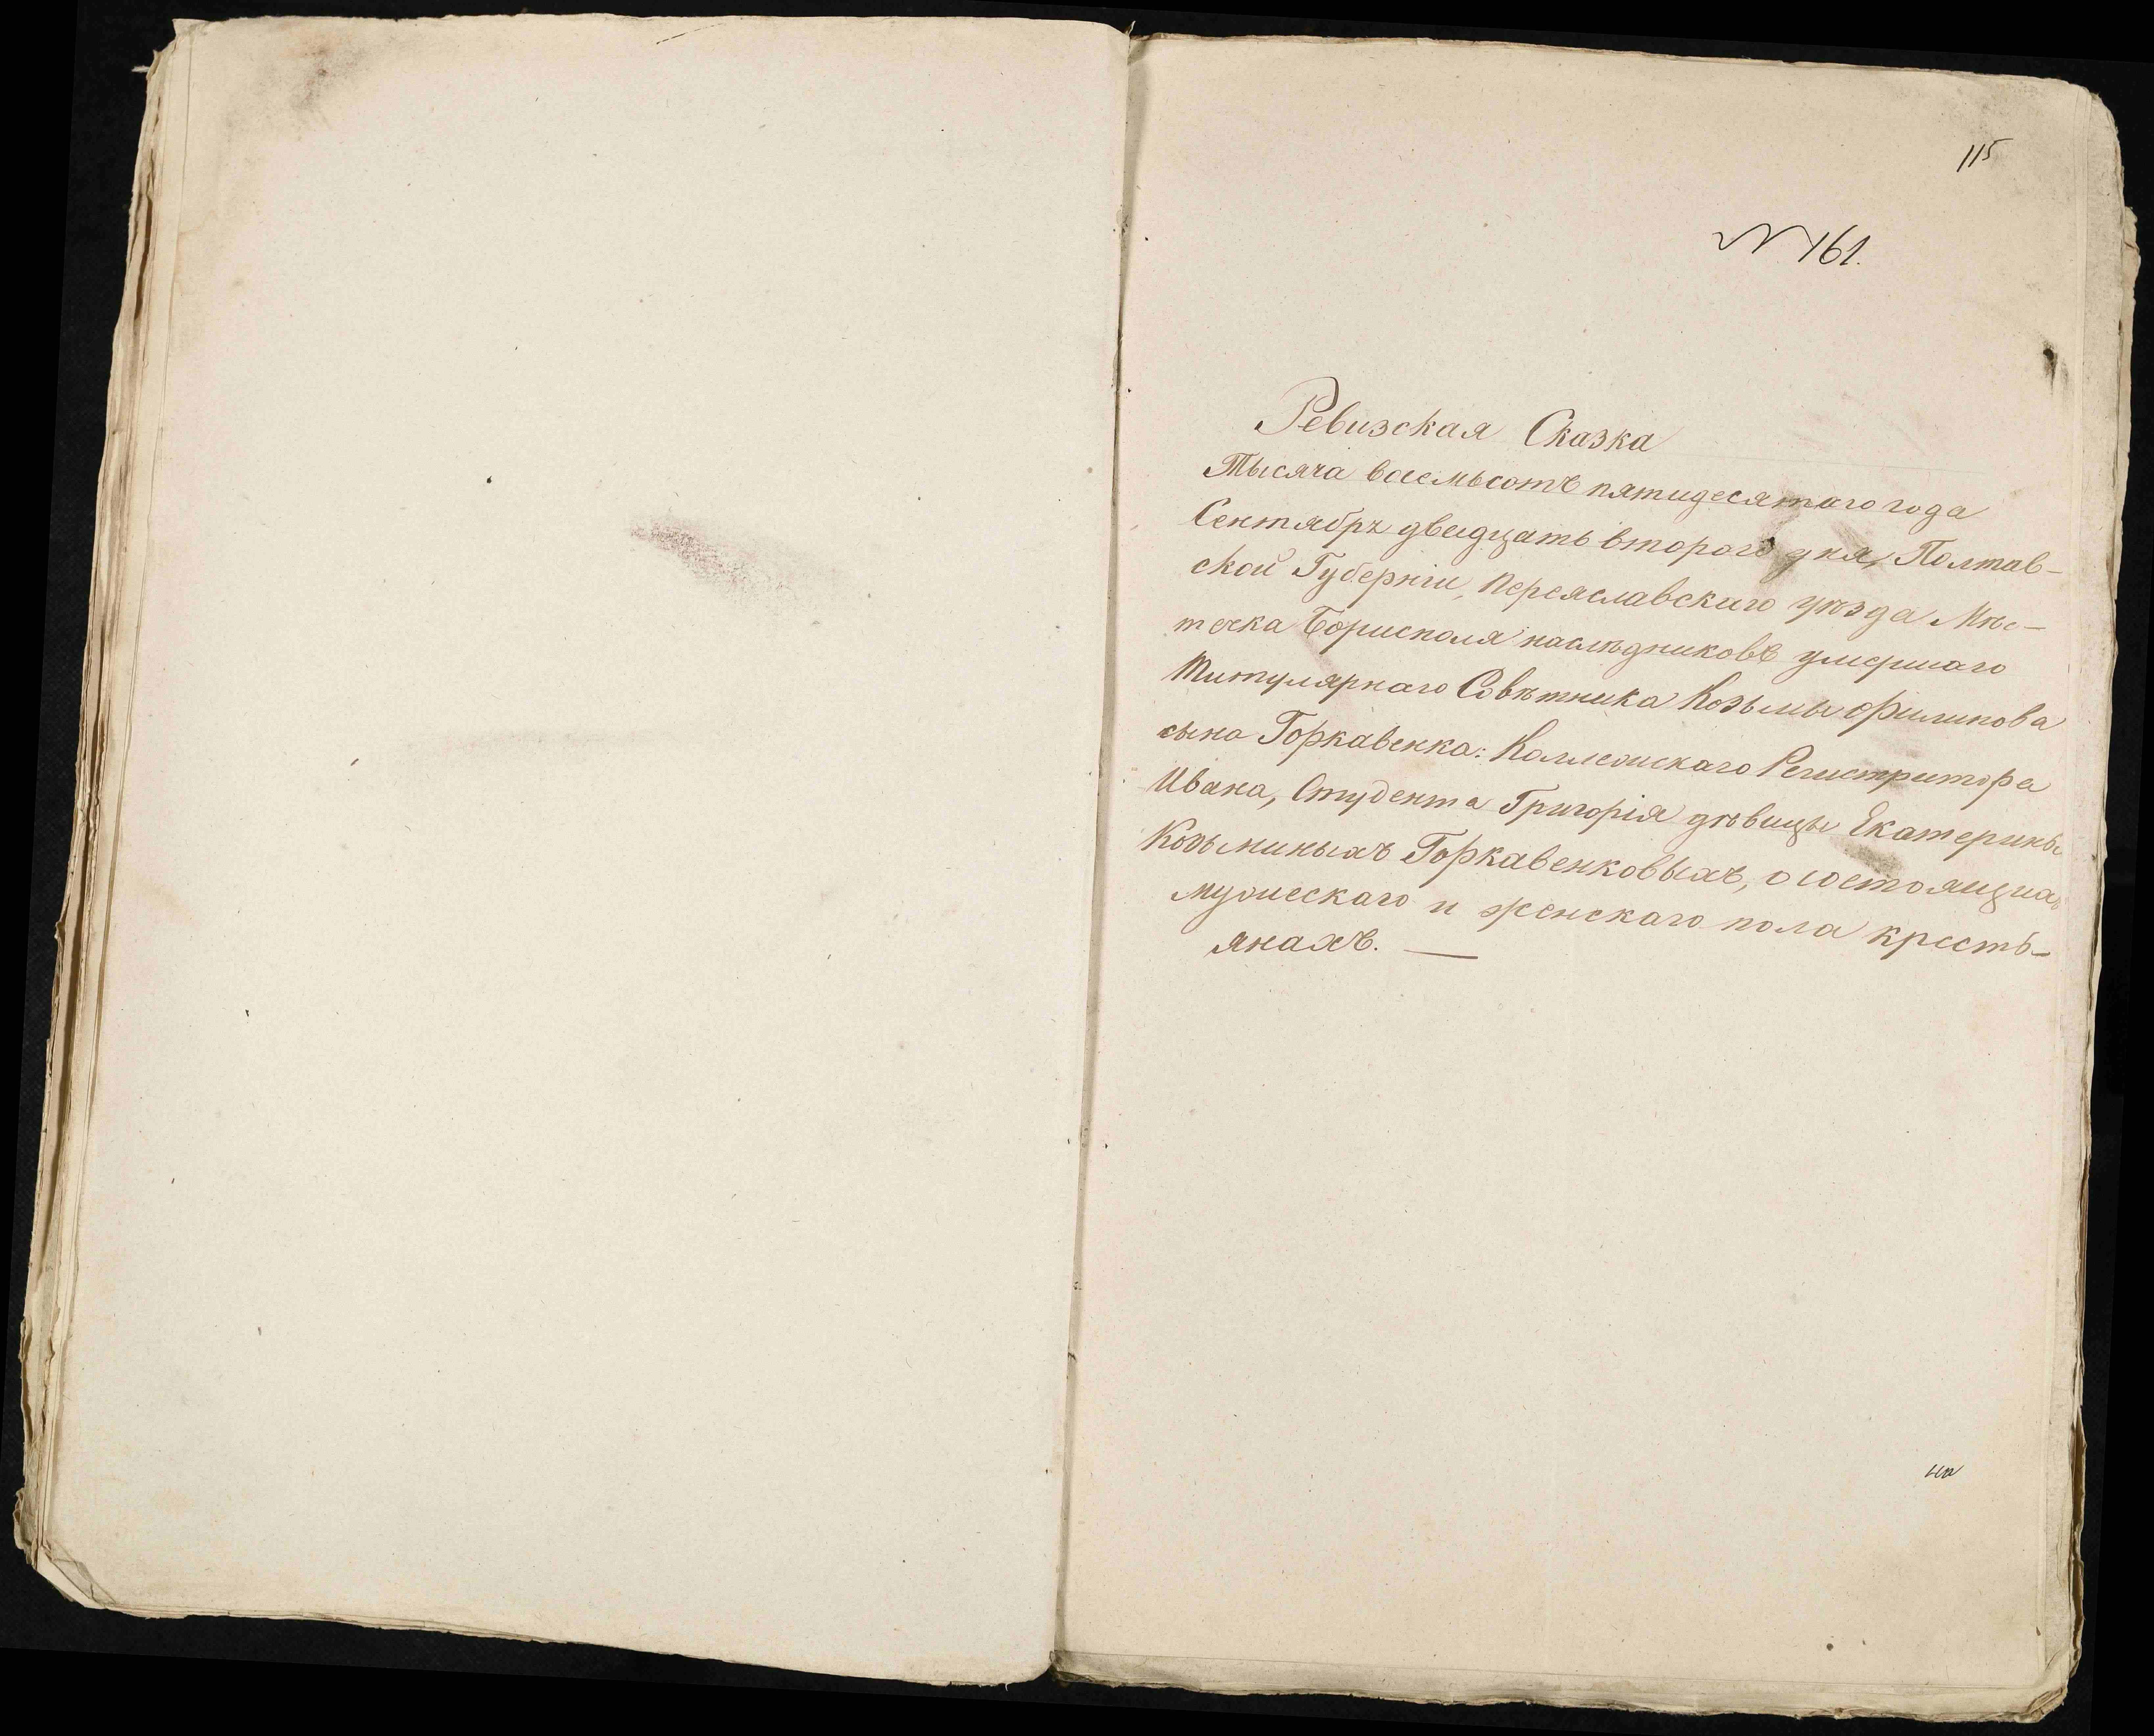 115
№ 161.
Ревизская Сказка
Тысяча восемьсотъ пятидесятаго года
Сентября двадцать второго дня, Полтав-
ской Губерніи, Переяславскаго уѣзда Мѣс-
течка Борисполя наслѣдниковъ умершаго
Титулярнаго Совѣтника Козьмы Филипова
сына Горкавенка: Коллежскаго Регистратора
Ивана, Студента Григорія дѣвицы Екатерины
Козьминыхъ Горкавенковыхъ, о состоящихъ
мужескаго и женскаго пола кресть-
янахъ. —